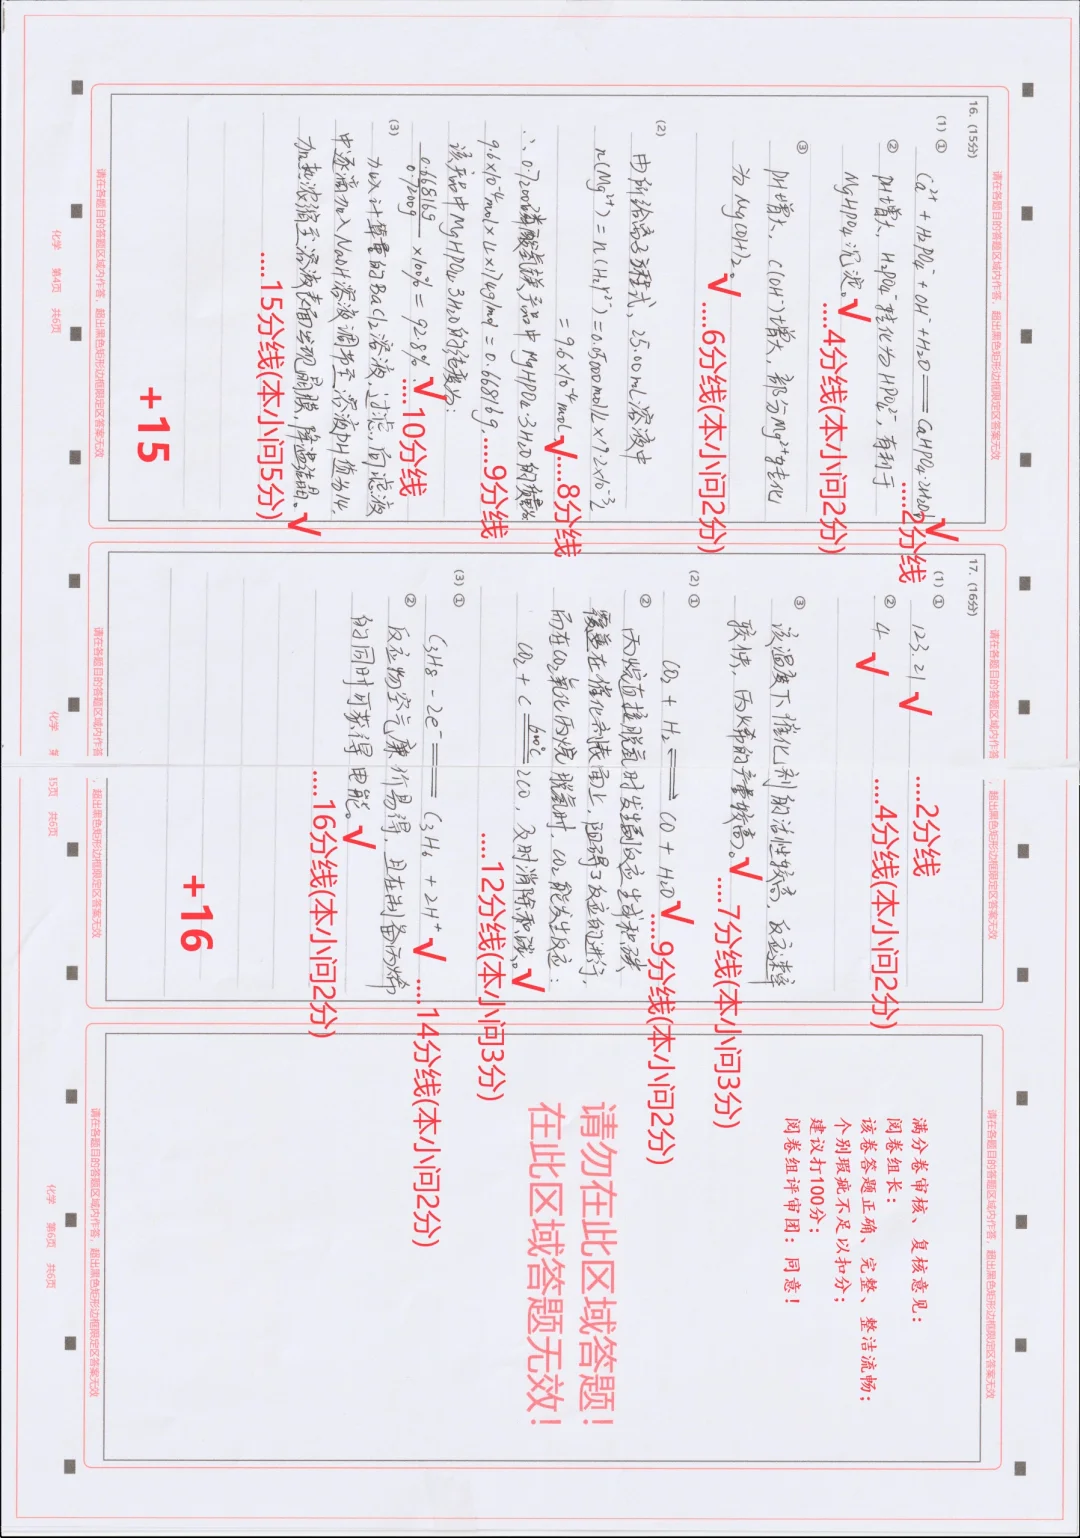 请在各题目的答题区域内作答，超出黑色矩形边框限定区答案无效
16. (15分)
(1) ① Ca²⁺ + H₂PO₄⁻ + OH⁻ + H₂O ══ CaHPO₄·2H₂O↓ √
……2分线
② pH增大，H₂PO₄⁻转化为HPO₄²⁻，有利于
MgHPO₄沉淀。√
……4分线(本小问2分)
③ pH增大，c(OH⁻)增大，部分Mg²⁺转化
为Mg(OH)₂。√
……6分线(本小问2分)
(2)
由所给离子方程式，25.00mL溶液中
n(Mg²⁺) = n(H₂Y²⁻) = 0.05000mol/L×19.2×10⁻³L
= 9.6×10⁻⁴mol √
……8分线
∴ 0.7200g磷酸氢镁产品中MgHPO₄·3H₂O的质量为
9.6×10⁻⁴mol×4×174g/mol = 0.66816g
……9分线
该产品中MgHPO₄·3H₂O的纯度为：
0.66816g/0.7200g ×100% = 92.8% √
……10分线
(3) 加入计算量的BaCl₂溶液，过滤，向滤液
中逐滴加入NaOH溶液调节至溶液pH值为4，
加热浓缩至溶液表面出现晶膜，降温结晶。√
……15分线(本小问5分)
+15
化学 第4页 共6页
请在各题目的答题区域内作答，超出黑色矩形边框限定区答案无效
请在各题目的答题区域内作答
，超出黑色矩形边框限定区答案无效
17. (16分)
(1) ① 123.21 √
……2分线
② 4 √
……4分线(本小问2分)
③ 该温度下催化剂的活性较高，反应速率
较快，丙烯的产量较高。√
……7分线(本小问3分)
(2) ① CO₂ + H₂ ⇌ CO + H₂O √
……9分线(本小问2分)
② 丙烷直接脱氢时发生副反应生成积碳
覆盖在催化剂表面上，阻碍了反应的进行，
而在CO₂氧化丙烷脱氢时，CO₂能发生反应：
CO₂ + C ══ 600℃ 2CO，及时消除积碳。√
……12分线(本小问3分)
(3) ① C₃H₈ - 2e⁻ ══ C₃H₆ + 2H⁺ √
……14分线(本小问2分)
② 反应物空气廉价易得，且在制备丙烯
的同时可获得电能。√
……16分线(本小问2分)
+16
化学
5页 共6页
请在各题目的答题区域内作答
，超出黑色矩形边框限定区答案无效
请在各题目的答题区域内作答，超出黑色矩形边框限定区答案无效
满分卷审核、复核意见：
阅卷组长：
该卷答题正确、完整、整洁流畅；
个别瑕疵不足以扣分；
建议打100分；
阅卷组评审团：同意！
请勿在此区域答题！
在此区域答题无效！
化学 第6页 共6页
请在各题目的答题区域内作答，超出黑色矩形边框限定区答案无效